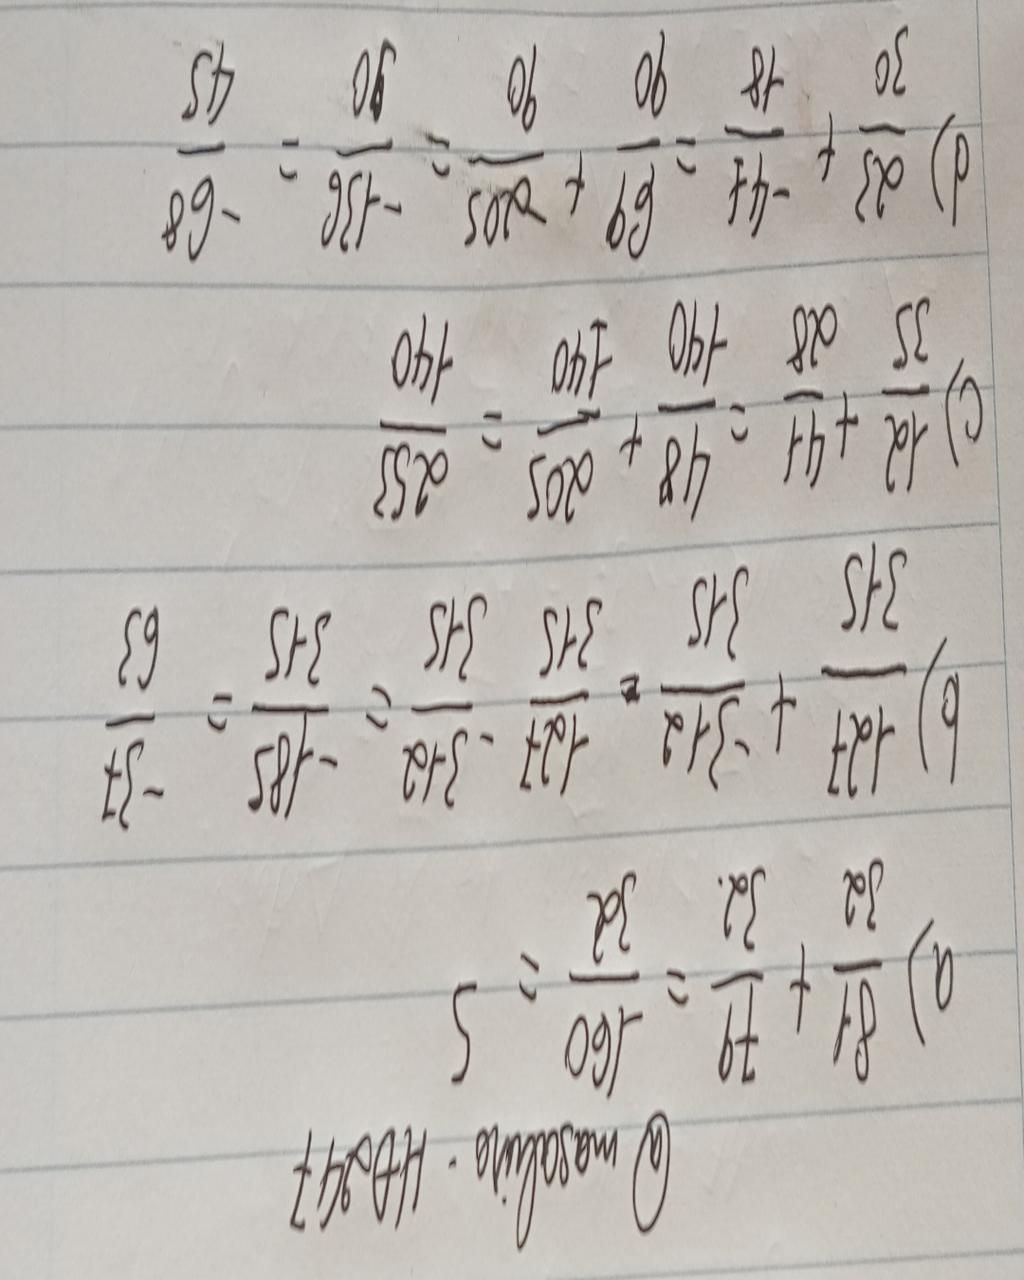 @ masalune - HD247
a) 81/32 + 79/32. = 160/32 = 5
b) 127/315 + -312/315 = 127/315 - 312/315 = -185/315 = -37/63
c) 12/35 + 41/28 = 48/140 + 205/140 = 253/140
d) 23/30 + -41/18 = 69/90 + 205/90 = -136/90 = -68/45